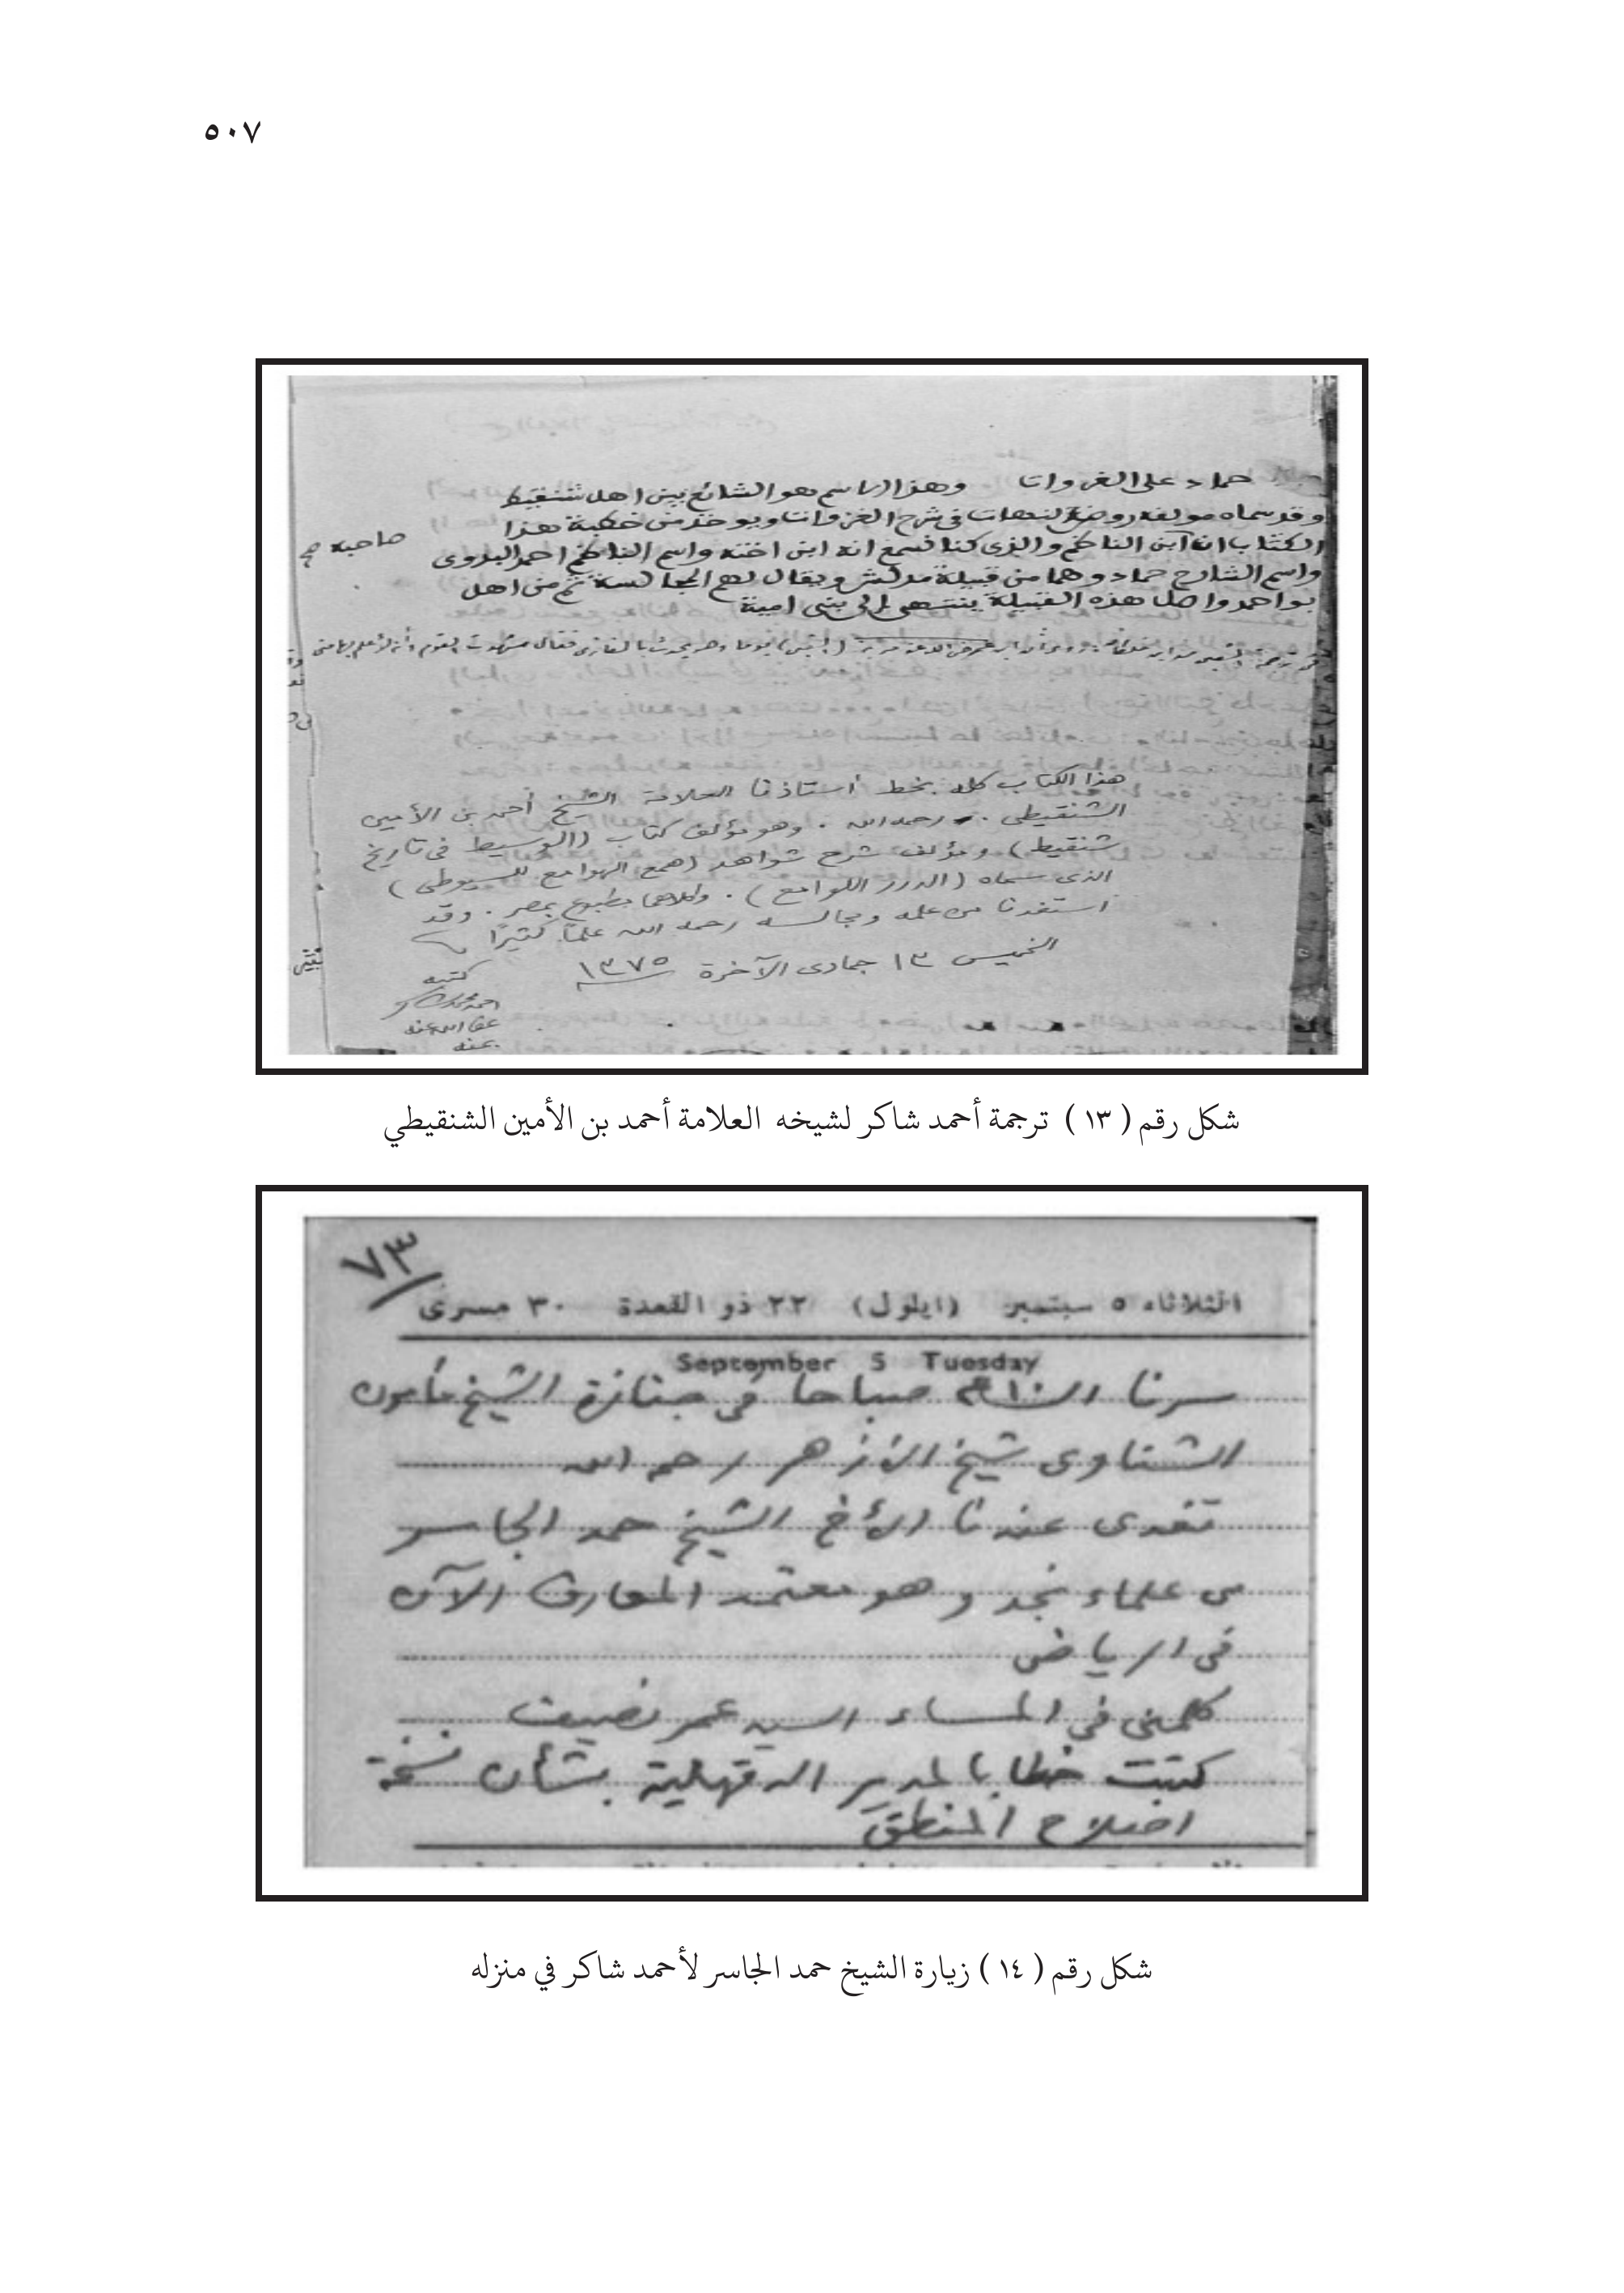 ٥٠٧
حماد على الغزوات وهذا الاسم هو الشائع بين اهل شنقيط
وقد سماه مولفه روض النهات في شرح الغزوات ويوخذ من خطبة هذا
الكتاب انه ابن الناظم والذي كنا نسمع انه ابن اخته واسم الناظم احمد البدوى
صاحبه
واسم الشارح حماد وهما من قبيلة مدلش ويقال لهم المجالسة ثم من اهل
بو احمد واصل هذه القبيلة ينتهى الى بنى امية
هذا الكتاب كله بخط أستاذنا العلامة الشيخ أحمد بن الأمين
الشنقيطى رحمه الله . وهو مؤلف كتاب (الوسيط فى تاريخ
شنقيط) ومؤلف شرح شواهد (همع الهوامع للسيوطى)
الذى سماه (الدرر اللوامع) . وكلاهما مطبوع بمصر . وقد
استفدنا من علمه ومجالسه رحمه الله علمًا كثيرًا
الخميس ١٣ جمادى الآخرة ١٣٧٥
كتبه
احمد محمد شاكر
عفا الله عنه
بمنه
شكل رقم ( ١٣ ) ترجمة أحمد شاكر لشيخه العلامة أحمد بن الأمين الشنقيطي
٧٣
الثلاثاء ٥ سبتمبر (ايلول) ٢٢ ذو القعدة ٣٠ مسرى
September 5 Tuesday
سرنا الـ ١٠ صباحا فى جنازة الشيخ مأمون
الشناوى شيخ الأزهر رحمه الله
تغدى عندنا الأخ الشيخ حمد الجاسر
من علماء نجد وهو معتمد المعارف الآن
فى الرياض
كلمنى فى المساء السيد عمر نصيف
كتبت خطابا لمدير الدقهلية بشأن نسخة
اصلاح المنطق
شكل رقم ( ١٤ ) زيارة الشيخ حمد الجاسر لأحمد شاكر في منزله